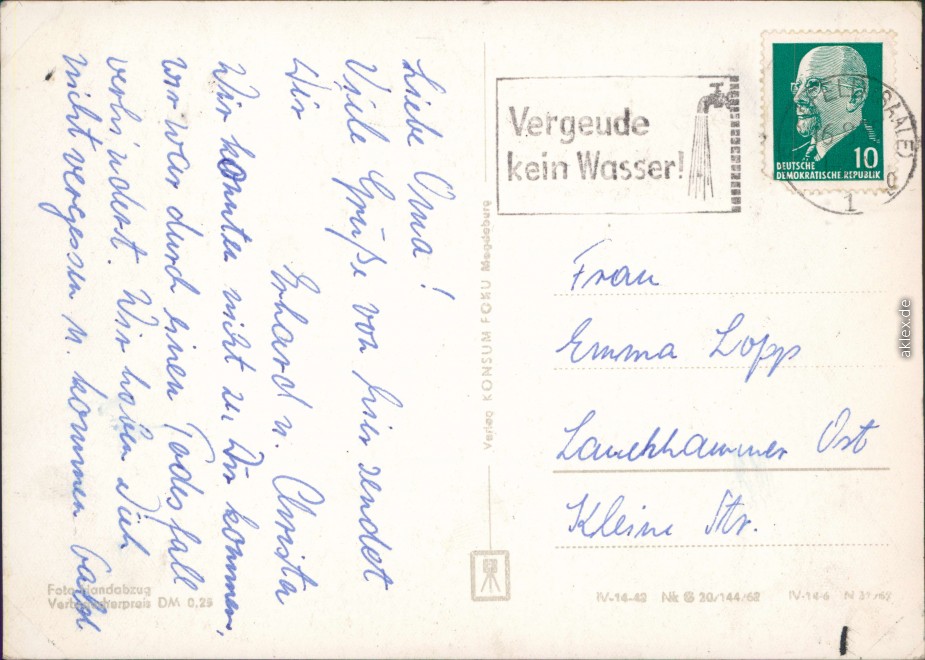 Liebe Oma!
Viele Grüße von hier sendet
Dir
Erhard u. Christa
Wir konnten nicht zu Dir kommen,
wir war durch einen Todesfall
verhindert. Wir haben Dich
nicht vergessen u. kommen bald
Verlag KONSUM FOKU Magdeburg
Foto-Handabzug
Verbraucherpreis DM 0,25
Vergeude
kein Wasser!
DEUTSCHE
DEMOKRATISCHE REPUBLIK
10
(SAALE)
1
Frau
Emma Lopp
Lauchhammer Ost
Kleine Str.
IV-14-42 Nk G 20/144/62 IV-14-6
aklex.de